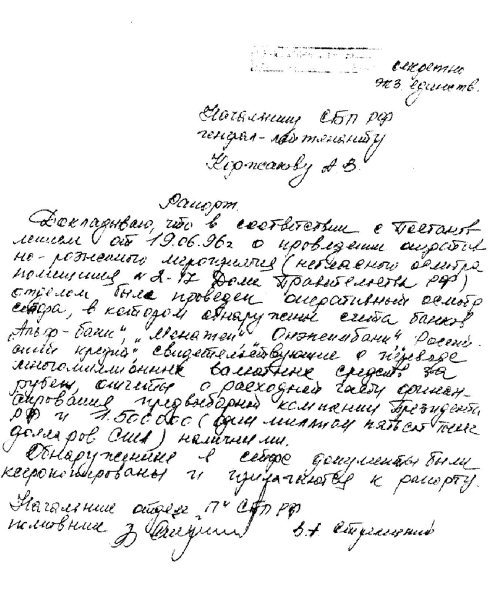 секретно
экз. единств.
Начальнику СБП РФ
генерал-лейтенанту
Коржакову А.В.
Рапорт
Докладываю, что в соответствии с Постанов
лением от 19.06.96г о проведении оператив
но-розыскного мероприятия (негласного осмотра
помещения № 2-17 Дома Правительства РФ)
отделом был проведен оперативный осмотр
сейфа, в котором обнаружены счета банков
„Альфа-банк", „Менатеп", „Онэксимбанк", Россий
ский кредит" свидетельствующие о переводе
многомиллионных валютных средств за
рубеж, отчеты о расходной части финан-
сирования предвыборной компании Президента
РФ и 1.500 000 (один миллион пятьсот тысяч
долларов США) наличными.
Обнаруженные в сейфе документы были
ксерокопированы и прилагаются к рапорту.
Начальник отдела „П" СБП РФ
полковник В.А. Стрелецкий